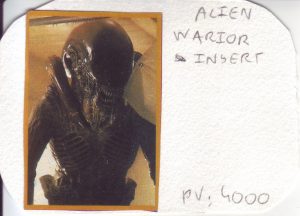 ALIEN
WARIOR
INSERT
PV; 4000